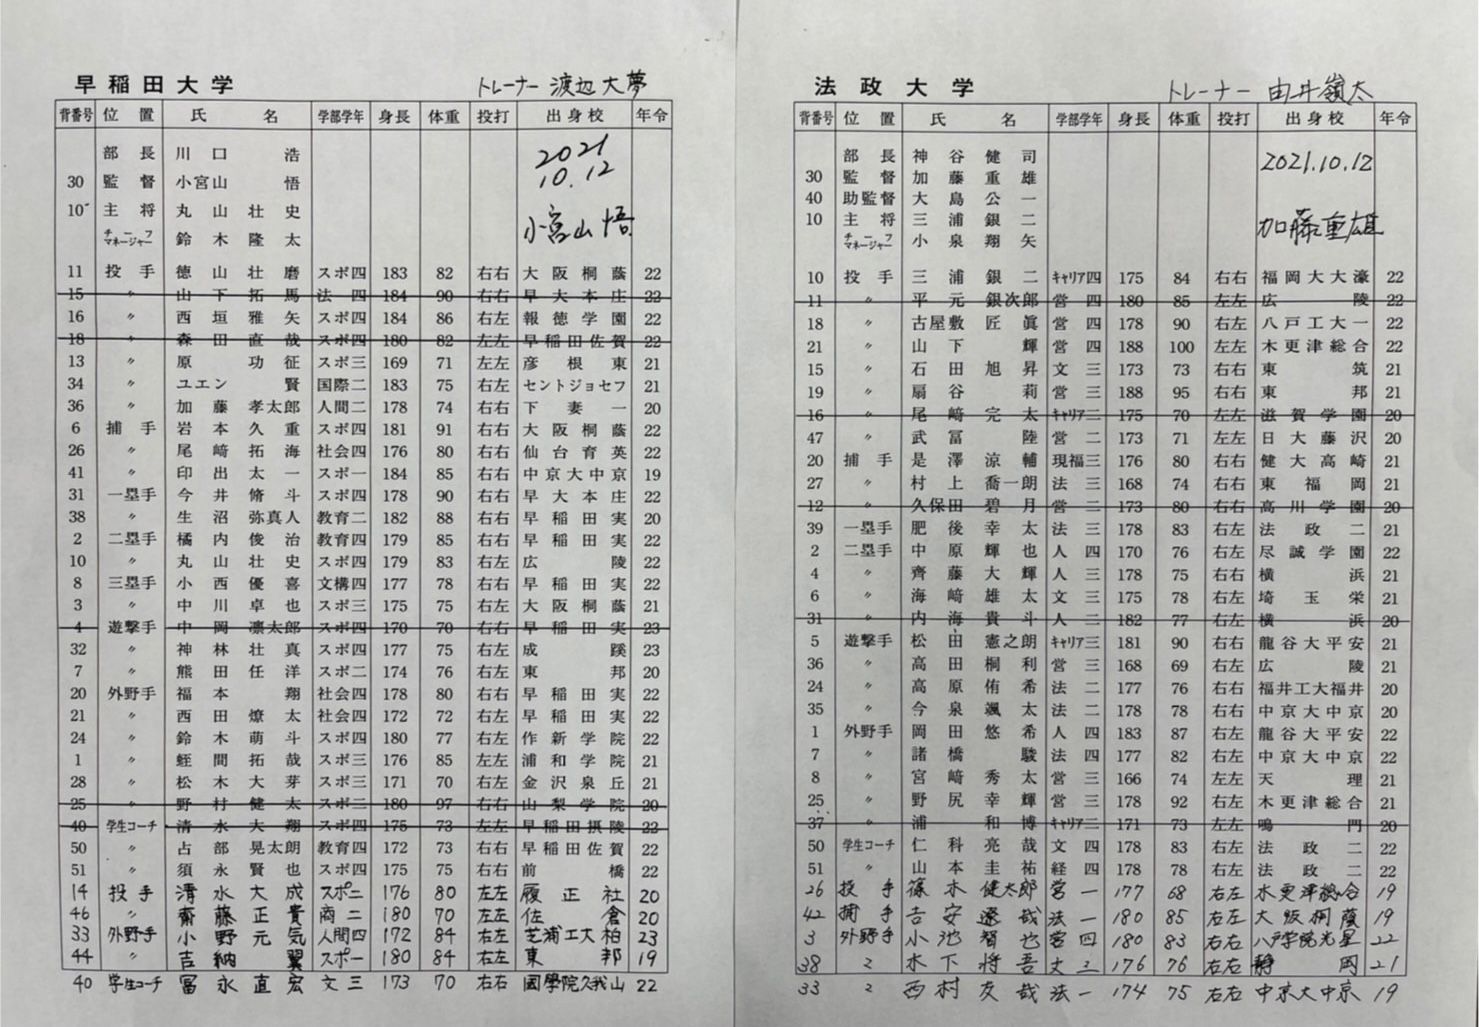 早稲田大学 トレーナー 渡辺大夢
背番号 位置 氏名 学部学年 身長 体重 投打 出身校 年令
部長 川口浩 2021
30 監督 小宮山悟 10.12
10 主将 丸山壮史 小宮山悟
チーフマネージャー 鈴木隆太
11 投手 徳山壮磨 スポ四 183 82 右右 大阪桐蔭 22
15 〃 山下拓馬 法四 184 90 右右 早大本庄 22
16 〃 西垣雅矢 スポ四 184 86 右左 報徳学園 22
18 〃 森田直哉 スポ四 180 82 左左 早稲田佐賀 22
13 〃 原功征 スポ三 169 71 左左 彦根東 21
34 〃 ユエン賢 国際二 183 75 右左 セントジョセフ 21
36 〃 加藤孝太郎 人間二 178 74 右右 下妻一 20
6 捕手 岩本久重 スポ四 181 91 右右 大阪桐蔭 22
26 〃 尾﨑拓海 社会四 176 80 右左 仙台育英 22
41 〃 印出太一 スポ一 184 85 右右 中京大中京 19
31 一塁手 今井脩斗 スポ四 178 90 右右 早大本庄 22
38 〃 生沼弥真人 教育二 182 88 右右 早稲田実 20
2 二塁手 橘内俊治 教育四 179 85 右右 早稲田実 22
10 〃 丸山壮史 スポ四 179 83 右左 広陵 22
8 三塁手 小西優喜 文構四 177 78 右右 早稲田実 22
3 〃 中川卓也 スポ三 175 75 右左 大阪桐蔭 21
4 遊撃手 中岡凛太郎 スポ四 170 70 右右 早稲田実 23
32 〃 神林壮真 スポ四 177 75 右左 成蹊 23
7 〃 熊田任洋 スポ二 174 76 右左 東邦 20
20 外野手 福本翔 社会四 178 80 右右 早稲田実 22
21 〃 西田燎太 社会四 172 72 右左 早稲田実 22
24 〃 鈴木萌斗 スポ四 180 77 右左 作新学院 22
1 〃 蛭間拓哉 スポ三 176 85 左左 浦和学院 21
28 〃 松木大芽 スポ三 171 70 右左 金沢泉丘 21
25 〃 野村健太 スポ二 180 97 右右 山梨学院 20
40 学生コーチ 清水大翔 スポ四 175 73 左左 早稲田摂陵 22
50 〃 占部晃太朗 教育四 172 73 右右 早稲田佐賀 22
51 〃 須永賢也 スポ四 175 75 右右 前橋 22
14 投手 清水大成 スポ二 176 80 左左 履正社 20
46 〃 齋藤正貴 商二 180 70 左左 佐倉 20
33 外野手 小野元気 人間四 172 84 右左 芝浦工大柏 23
44 〃 吉納翼 スポ一 180 84 右左 東邦 19
40 学生コーチ 冨永直宏 文三 173 70 右右 國學院久我山 22
法政大学 トレーナー 由井嶺太
背番号 位置 氏名 学部学年 身長 体重 投打 出身校 年令
部長 神谷健司 2021.10.12
30 監督 加藤重雄
40 助監督 大島公一
10 主将 三浦銀二 加藤重雄
チーフマネージャー 小泉翔矢
10 投手 三浦銀二 キャリア四 175 84 右右 福岡大大濠 22
11 〃 平元銀次郎 営四 180 85 左左 広陵 22
18 〃 古屋敷匠眞 営四 178 90 右左 八戸工大一 22
21 〃 山下輝 営四 188 100 左左 木更津総合 22
15 〃 石田旭昇 文三 173 73 右右 東筑 21
19 〃 扇谷莉 営三 188 95 右右 東邦 21
16 〃 尾﨑完太 キャリア二 175 70 左左 滋賀学園 20
47 〃 武冨陸 営二 173 71 左左 日大藤沢 20
20 捕手 是澤涼輔 現福三 176 80 右右 健大高崎 21
27 〃 村上喬一朗 法三 168 74 右右 東福岡 21
12 〃 久保田碧月 営二 173 80 右右 高川学園 20
39 一塁手 肥後幸太 法三 178 83 右左 法政二 21
2 二塁手 中原輝也 人四 170 76 右左 尽誠学園 22
4 〃 齊藤大輝 人三 178 75 右右 横浜 21
6 〃 海﨑雄太 文三 175 78 右左 埼玉栄 21
31 〃 内海貴斗 人二 182 77 右左 横浜 20
5 遊撃手 松田憲之朗 キャリア三 181 90 右右 龍谷大平安 21
36 〃 高田桐利 営三 168 69 右左 広陵 21
24 〃 高原侑希 法二 177 76 右右 福井工大福井 20
35 〃 今泉颯太 法二 178 78 右右 中京大中京 20
1 外野手 岡田悠希 人四 183 87 右左 龍谷大平安 22
7 〃 諸橋駿 法四 177 82 右右 中京大中京 22
8 〃 宮﨑秀太 営三 166 74 左左 天理 21
25 〃 野尻幸輝 営三 178 92 右左 木更津総合 21
37 〃 浦和博 キャリア二 171 73 左左 鳴門 20
50 学生コーチ 仁科亮哉 文四 178 83 右左 法政二 22
51 〃 山本圭祐 経四 178 78 右左 法政二 22
26 投手 篠木健太郎 営一 177 68 右左 木更津総合 19
42 捕手 吉安遼哉 法一 180 85 右左 大阪桐蔭 19
3 外野手 小池智也 営四 180 83 右右 八戸学院光星 22
38 〃 木下将吾 文三 176 76 右右 静岡 21
33 〃 西村友哉 法一 174 75 右左 中京大中京 19